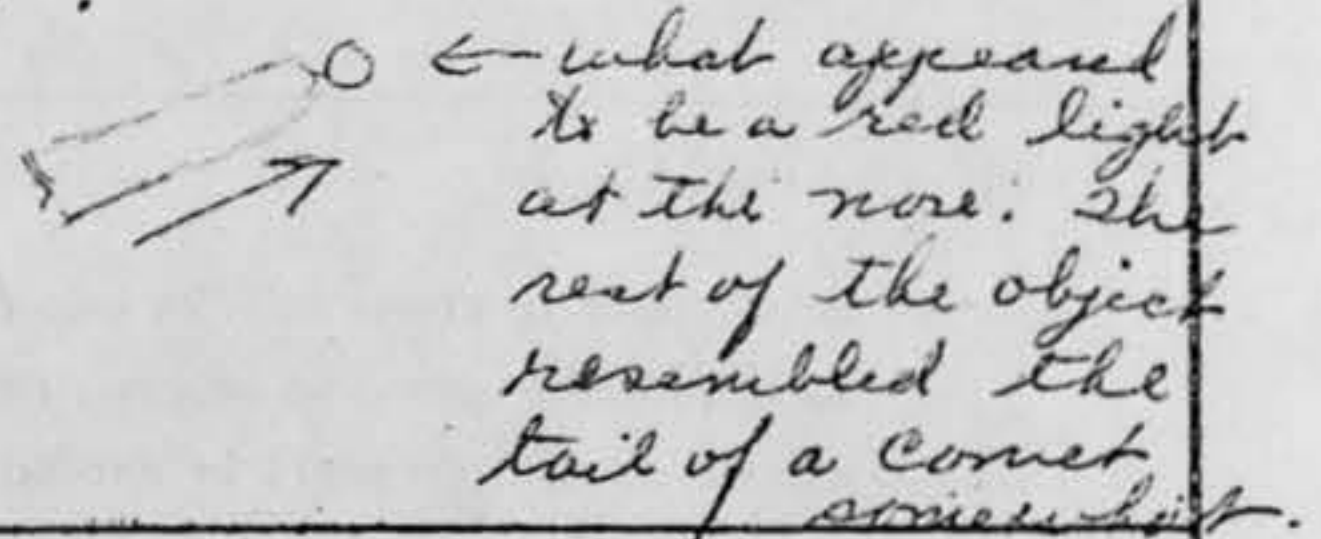 what appeared
to be a red light
at the nose. The
rest of the object
resembled the
tail of a comet
somewhat.